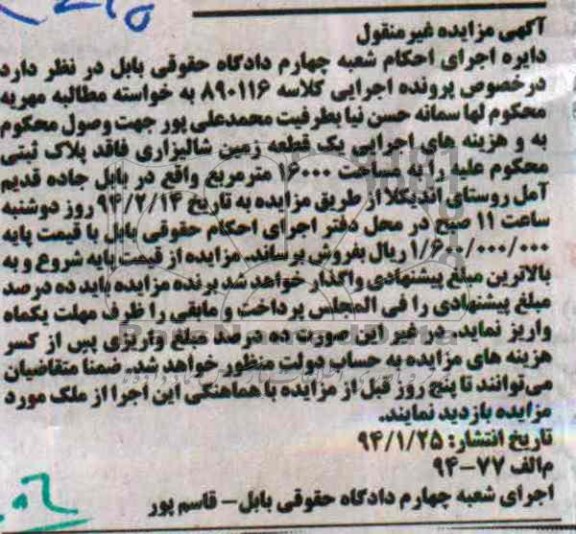 آگهی مزایده غیرمنقول
دایره اجرای احکام شعبه چهارم دادگاه حقوقی بابل در نظر دارد
درخصوص پرونده اجرایی کلاسه ۸۹۰۱۱۶ به خواسته مطالبه مهریه
محکوم لها سمانه حسن نیا بطرفیت محمدعلی پور جهت وصول محکوم
به و هزینه های اجرایی یک قطعه زمین شالیزاری فاقد پلاک ثبتی
محکوم علیه را به مساحت ۱۶۰۰۰ مترمربع واقع در بابل جاده قدیم
آمل روستای اندیکلا از طریق مزایده به تاریخ ۹۴/۲/۱۴ روز دوشنبه
ساعت ۱۱ صبح در محل دفتر اجرای احکام حقوقی بابل با قیمت پایه
۱/۶۰۰/۰۰۰/۰۰۰ ریال بفروش برساند. مزایده از قیمت پایه شروع و به
بالاترین مبلغ پیشنهادی واگذار خواهد شد برنده مزایده باید ده درصد
مبلغ پیشنهادی را فی المجلس پرداخت و مابقی را ظرف مهلت یکماه
واریز نماید. در غیر این صورت ده درصد مبلغ واریزی پس از کسر
هزینه های مزایده به حساب دولت منظور خواهد شد. ضمنا متقاضیان
می توانند تا پنج روز قبل از مزایده با هماهنگی این اجرا از ملک مورد
مزایده بازدید نمایند.
تاریخ انتشار: ۹۴/۱/۲۵
م الف ۷۷-۹۴
اجرای شعبه چهارم دادگاه حقوقی بابل – قاسم پور